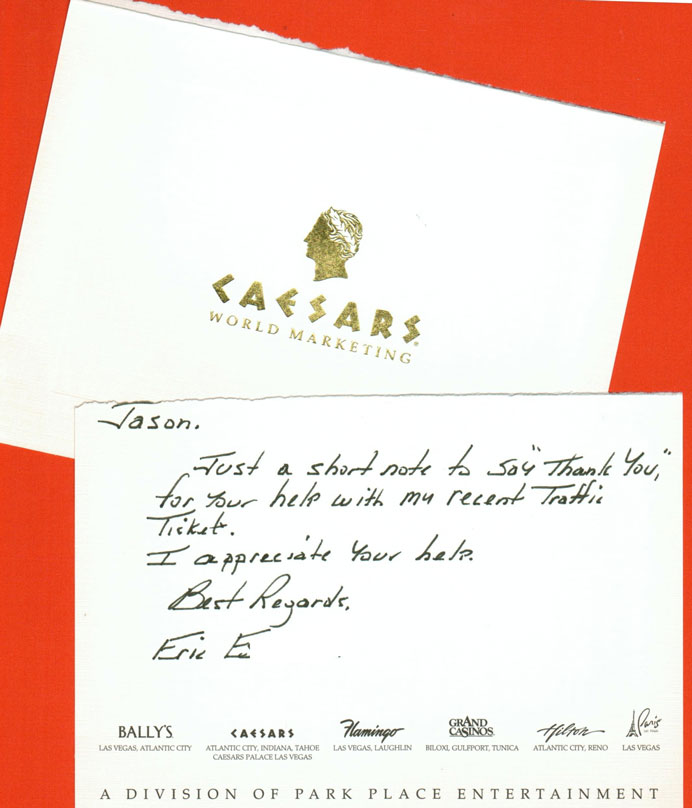 CAESARS
WORLD MARKETING
Jason.
Just a short note to say "Thank You,"
for your help with my recent Traffic
Ticket.
I appreciate your help.
Best Regards,
Eric E
BALLY'S
LAS VEGAS, ATLANTIC CITY
CAESARS
ATLANTIC CITY, INDIANA, TAHOE
CAESARS PALACE LAS VEGAS
Flamingo
LAS VEGAS, LAUGHLIN
GRAND
CASINOS
BILOXI, GULFPORT, TUNICA
Hilton
ATLANTIC CITY, RENO
Paris
LAS VEGAS
LAS VEGAS
A DIVISION OF PARK PLACE ENTERTAINMENT